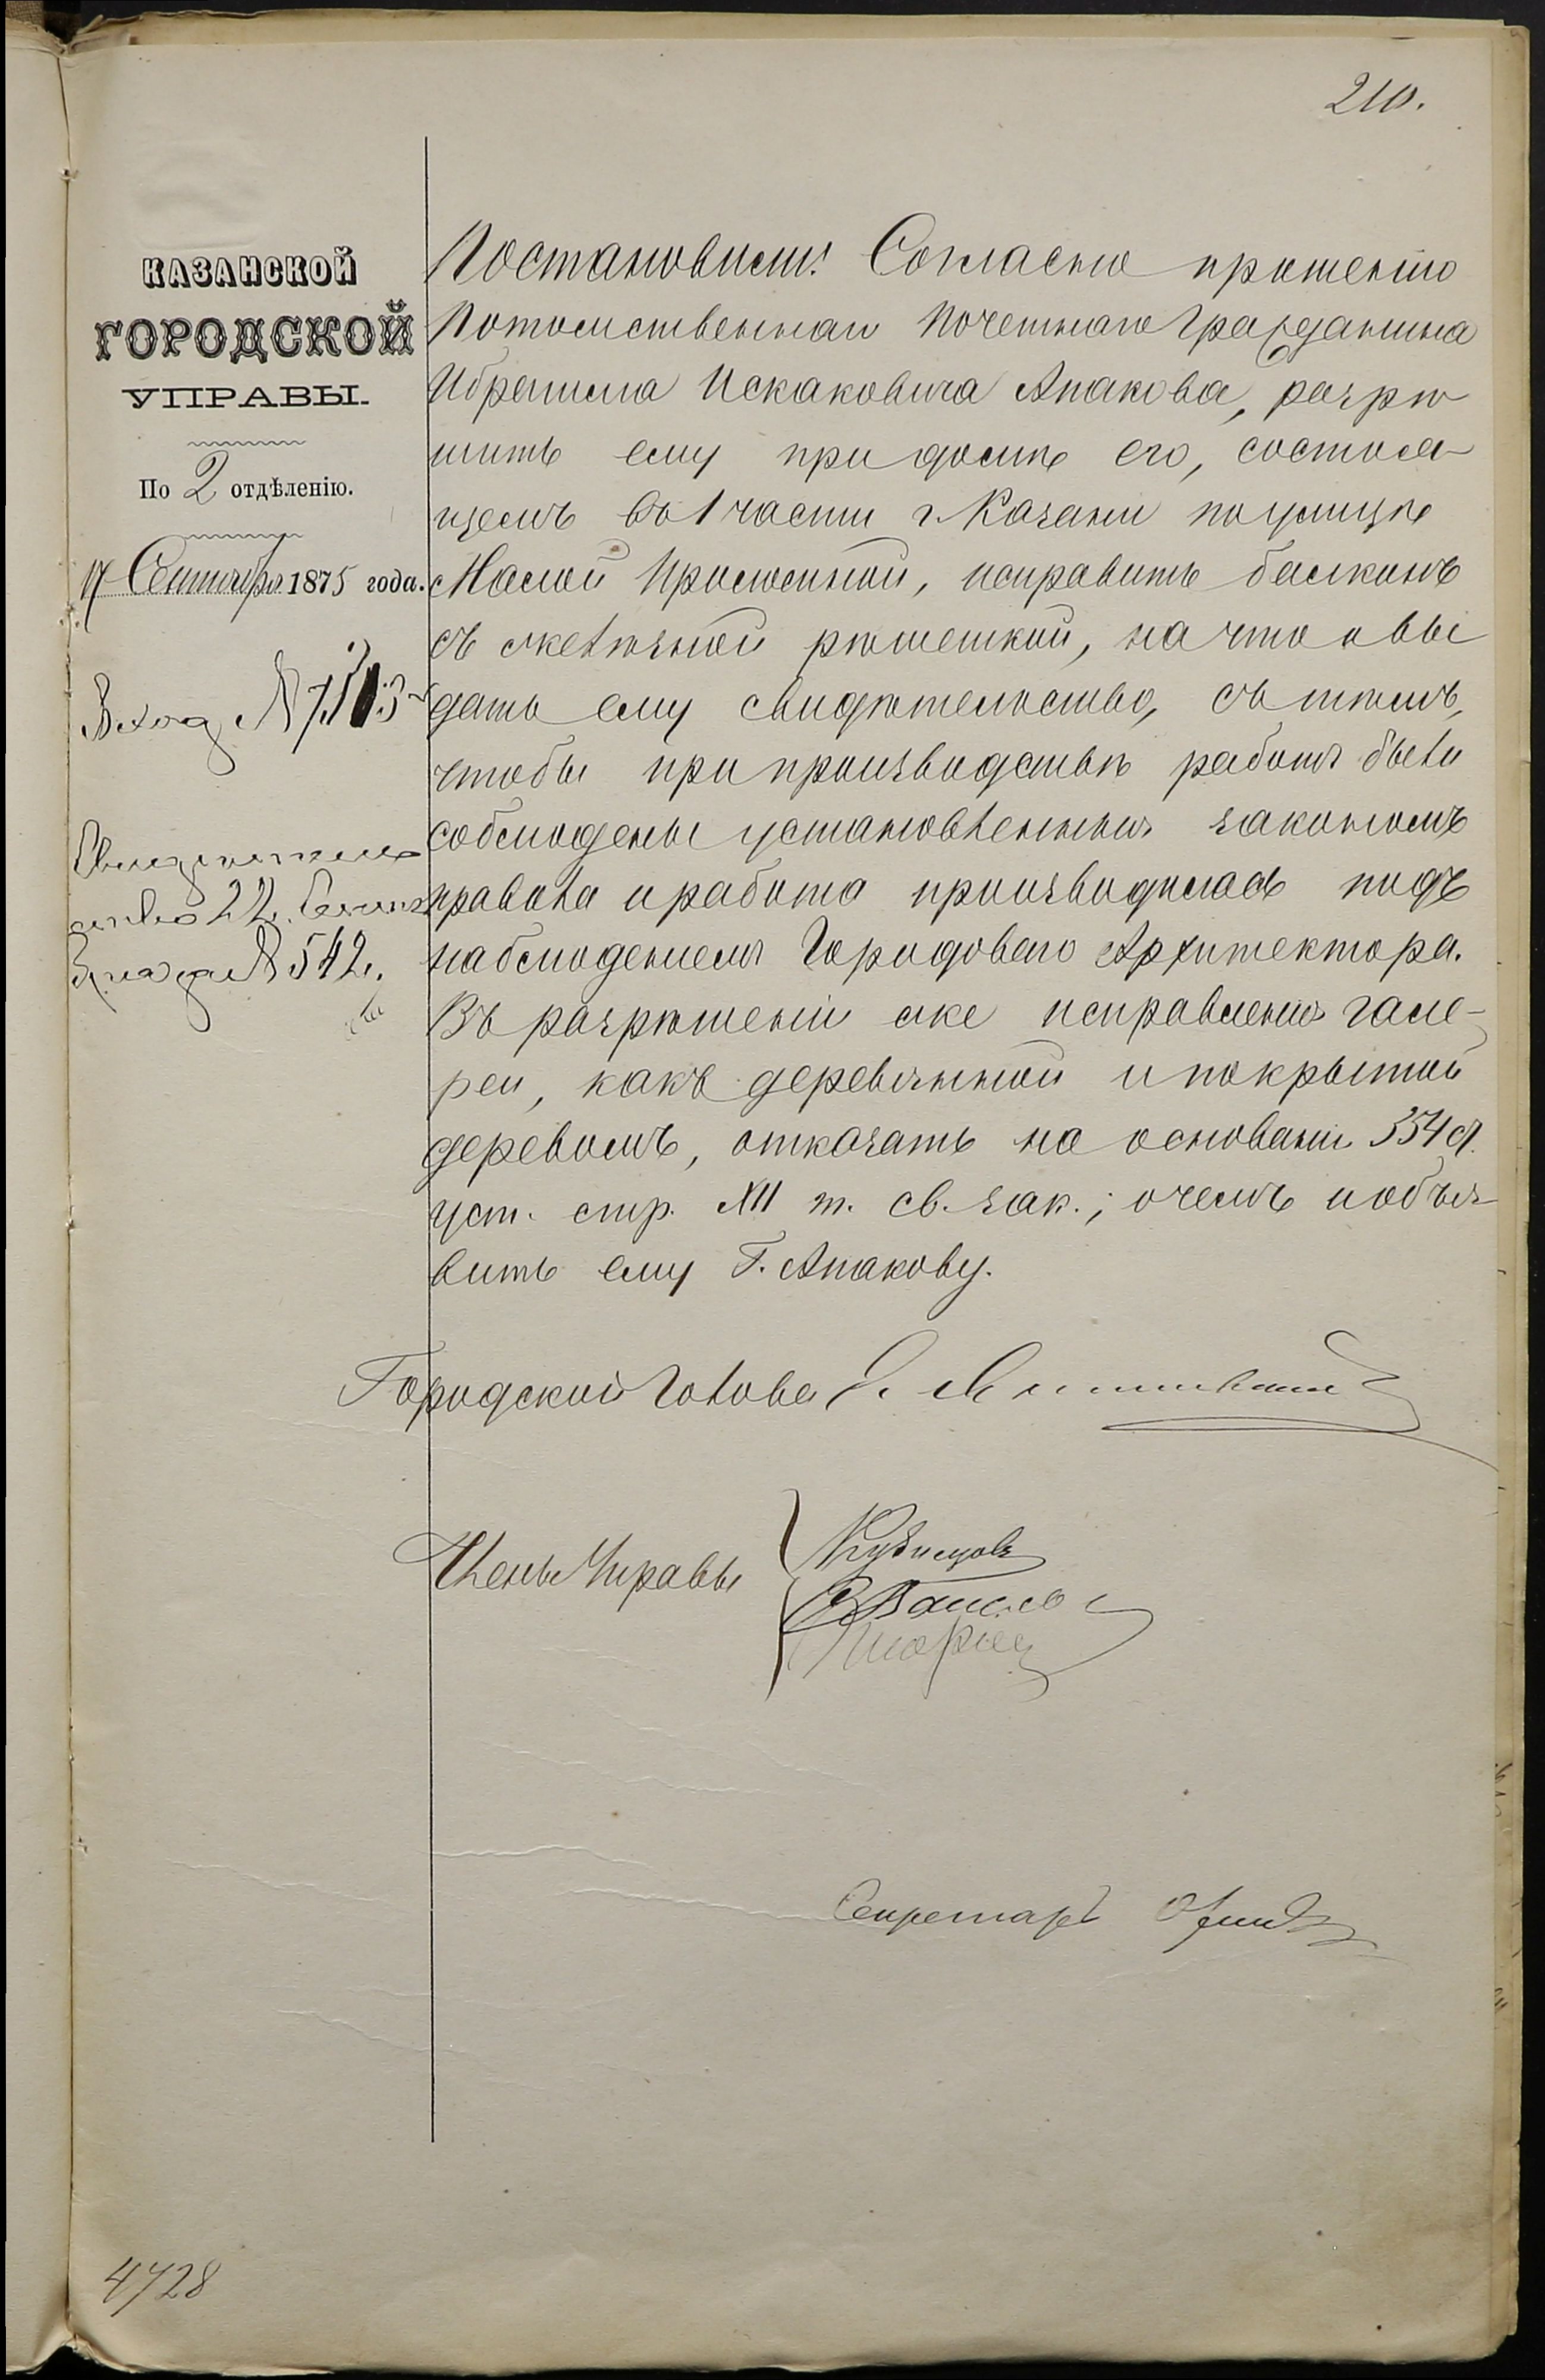 210.
КАЗАНСКОЙ
ГОРОДСКОЙ
УПРАВЫ.
По 2 отдѣленію.
17 Сентября 1875 года.
Вход № 7513
Свидѣтель
ство 22 Сентяб
за № 542.
Постановили: Согласно прошенію
Потомственнаго Почетнаго Гражданина
Ибрагима Искаковича Апакова, разрѣ
шить ему при домѣ его, состоя-
щемъ въ 1 части г. Казани по улицѣ
Малой Проломной, исправить балконъ
съ желѣзной рѣшеткой, на что и вы
дать ему свидѣтельство, съ тѣмъ,
чтобы при производствѣ работъ были
соблюдены установленныя закономъ
правила и работа производилась подъ
наблюденіемъ Городоваго Архитектора.
Въ разрѣшеніи же исправленія гале-
реи, какъ деревянной и покрытой
деревомъ, отказать на основаніи 354 ст.
уст. стр. XII т. св. зак.; о чемъ и объя-
вить ему Г. Апакову.
Городской Голова
Члены Управы
Кузнецовъ
Секретарь
4728